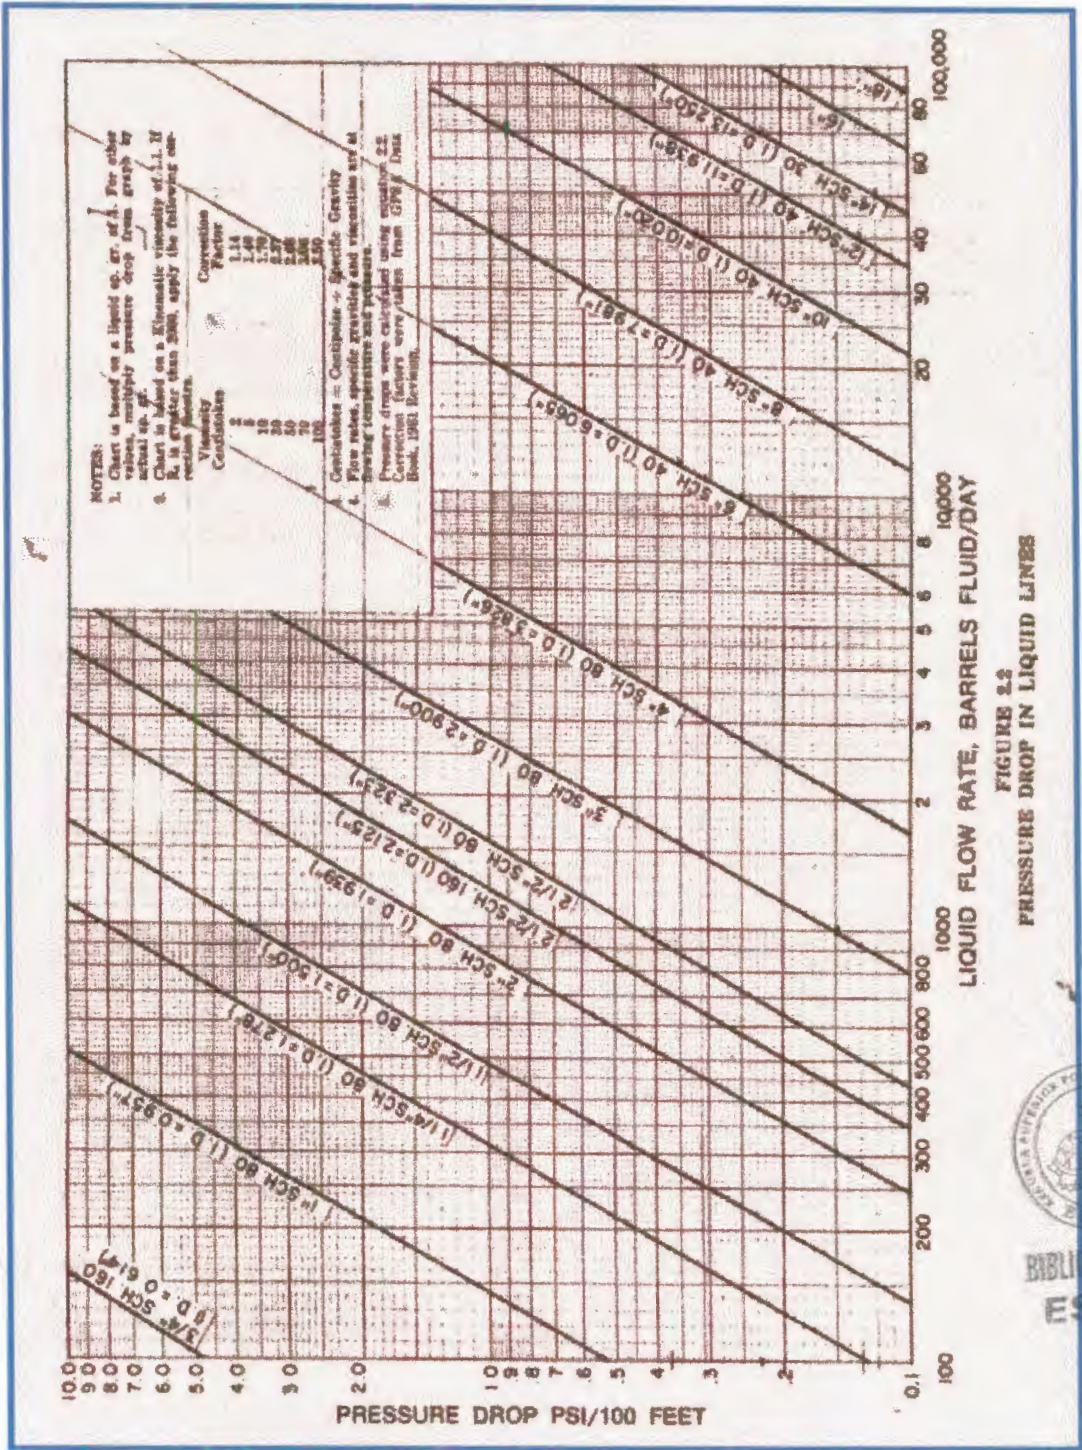 NOTES:
1. Chart is based on a liquid sp. gr. of 1. For other
values, multiply pressure drop from graph by
actual sp. gr.
2. Chart is based on a Kinematic viscosity of 1.1. If
R. is greater than 2000, apply the following cor-
rection factors.
Viscosity Correction
Centistokes Factor
2 1.14
5 1.40
10 1.70
50
70
100
3. Centistokes = Centipoise ÷ Specific Gravity
4. Flow rates, specific gravities and viscosities are at
flowing temperature and pressure.
5. Pressure drops were calculated using equation 2.2.
Correction factors were taken from Data
Book, 1981 Revision.
3/4" SCH 160
(I.D. = 0.614")
1" SCH 80 (I.D. = 0.957")
1 1/4" SCH 80 (I.D. = 1.278")
1 1/2" SCH 80 (I.D. = 1.500")
2" SCH 80 (I.D. = 1.939")
2 1/2" SCH 160 (I.D. = 2.125")
2 1/2" SCH 80 (I.D. = 2.323")
3" SCH 80 (I.D. = 2.900")
4" SCH 80 (I.D. = 3.826")
6" SCH 40 (I.D. = 6.065")
8" SCH 40 (I.D. = 7.981")
10" SCH 40 (I.D. = 10.020")
12" SCH 40 (I.D. = 11.938")
14" SCH 30 (I.D. = 13.250")
16"
18"
10.0
9.0
8.0
7.0
6.0
5.0
4.0
3.0
2.0
1.0
.9
.8
.7
.6
.5
.4
.3
.2
0.1
PRESSURE DROP PSI/100 FEET
100 200 300 400 500 600 800 1000 2 3 4 5 6 8 10,000 20 30 40 60 80 100,000
LIQUID FLOW RATE, BARRELS FLUID/DAY
FIGURE 2.2
PRESSURE DROP IN LIQUID LINES
BIBLI